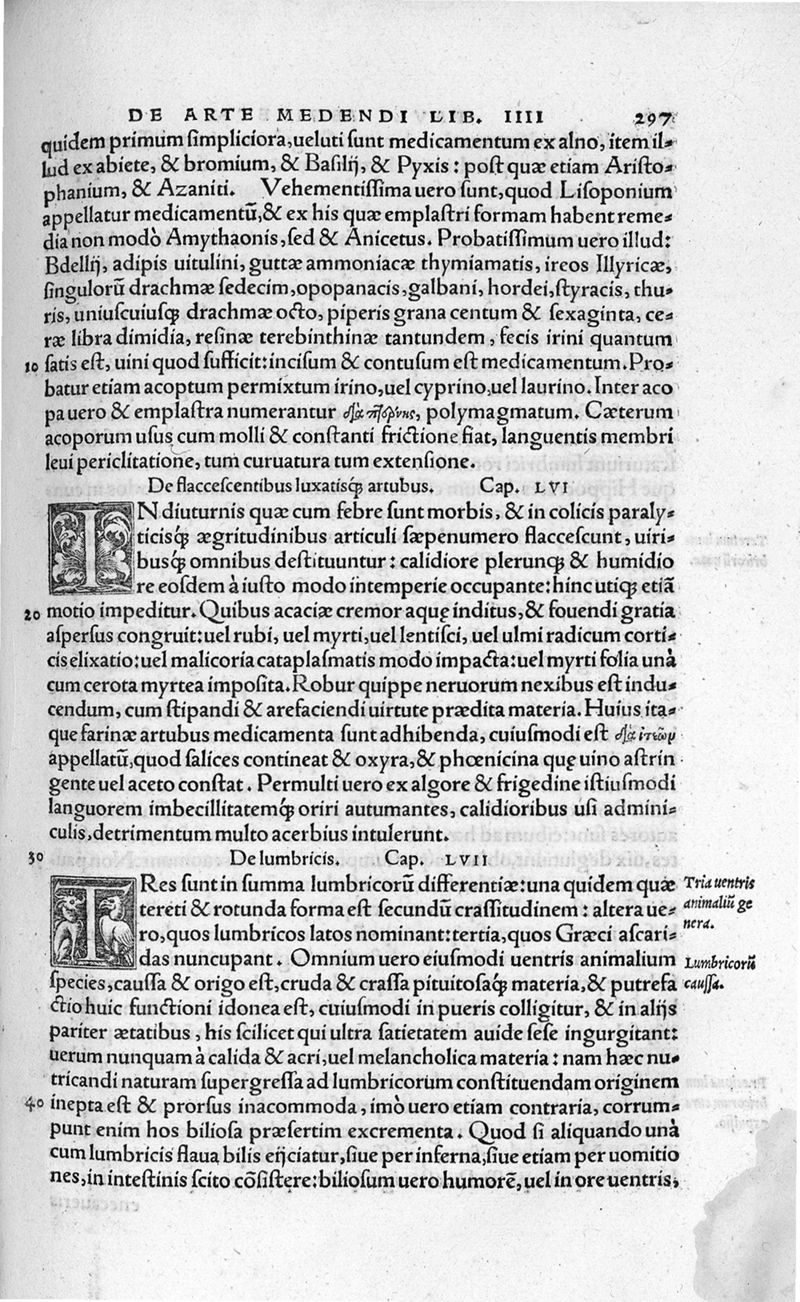 DE ARTE MEDENDI LIB. IIII 297
quidem primum ſimpliciora, ueluti ſunt medicamentum ex alno, item il-
lud ex abiete, & bromium, & Baſilij, & Pyxis: poſt quæ etiam Ariſto-
phanium, & Azaniti. Vehementiſſima uero ſunt, quod Liſoponium
appellatur medicamentũ, & ex his quæ emplaſtri formam habent reme-
dia non modò Amythaonis, ſed & Anicetus. Probatiſſimum uero illud:
Bdellij, adipis uitulini, guttæ ammoniacæ thymiamatis, ireos Illyricæ,
ſingulorũ drachmæ ſedecim, opopanacis, galbani, hordei, ſtyracis, thu-
ris, uniuſcuiuſq; drachmæ octo, piperis grana centum & ſexaginta, ce-
ræ libra dimidia, reſinæ terebinthinæ tantundem, fecis irini quantum
10 ſatis eſt, uini quod ſufficit: inciſum & contuſum eſt medicamentum. Pro-
batur etiam acoptum permixtum irino, uel cyprino, uel laurino. Inter aco
pa uero & emplaſtra numerantur polymagmatum. Cæterum
acoporum uſus cum molli & conſtanti frictione fiat, languentis membri
leui periclitatione, tum curuatura tum extenſione.
De flacceſcentibus luxatiſq; artubus. Cap. LVI
IN diuturnis quæ cum febre ſunt morbis, & in colicis paraly-
ticiſq; ægritudinibus articuli ſæpenumero flacceſcunt, uiri-
buſq; omnibus deſtituuntur: calidiore plerunq; & humidio
re eoſdem à iuſto modo intemperie occupante: hinc utiq; etiã
20 motio impeditur. Quibus acaciæ cremor aquę inditus, & fouendi gratia
aſperſus congruit: uel rubi, uel myrti, uel lentiſci, uel ulmi radicum corti-
cis elixatio: uel malicoria cataplaſmatis modo impacta: uel myrti folia unà
cum cerota myrtea impoſita. Robur quippe neruorum nexibus eſt indu-
cendum, cum ſtipandi & arefaciendi uirtute prædita materia. Huius ita-
que farinæ artubus medicamenta ſunt adhibenda, cuiuſmodi eſt διὰ ἰτεῶν
appellatũ, quod ſalices contineat & oxyra, & phœnicina quę uino aſtrin
gente uel aceto conſtat. Permulti uero ex algore & frigedine iſtiuſmodi
languorem imbecillitatemq; oriri autumantes, calidioribus uſi admini-
culis, detrimentum multo acerbius intulerunt.
30 De lumbricis. Cap. LVII
TRes ſunt in ſumma lumbricorũ differentiæ: una quidem quæ
tereti & rotunda forma eſt ſecundũ craſſitudinem: altera ue-
ro, quos lumbricos latos nominant: tertia, quos Græci aſcari-
das nuncupant. Omnium uero eiuſmodi uentris animalium
ſpecies, cauſſa & origo eſt, cruda & craſſa pituitoſaq; materia, & putrefa
ctio huic functioni idonea eſt, cuiuſmodi in pueris colligitur, & in alijs
pariter ætatibus, his ſcilicet qui ultra ſatietatem auide ſeſe ingurgitant:
uerum nunquam à calida & acri, uel melancholica materia: nam hæc nu-
tricandi naturam ſupergreſſa ad lumbricorum conſtituendam originem
40 inepta eſt & prorſus inacommoda, imò uero etiam contraria, corrum-
punt enim hos bilioſa præſertim excrementa. Quod ſi aliquando unà
cum lumbricis flaua bilis eijciatur, ſiue per inferna, ſiue etiam per uomitio
nes, in inteſtinis ſcito cõſiſtere: bilioſum uero humorẽ, uel in ore uentris,
Tria uentris
animaliũ ge
nera.
Lumbricorũ
cauſſa.